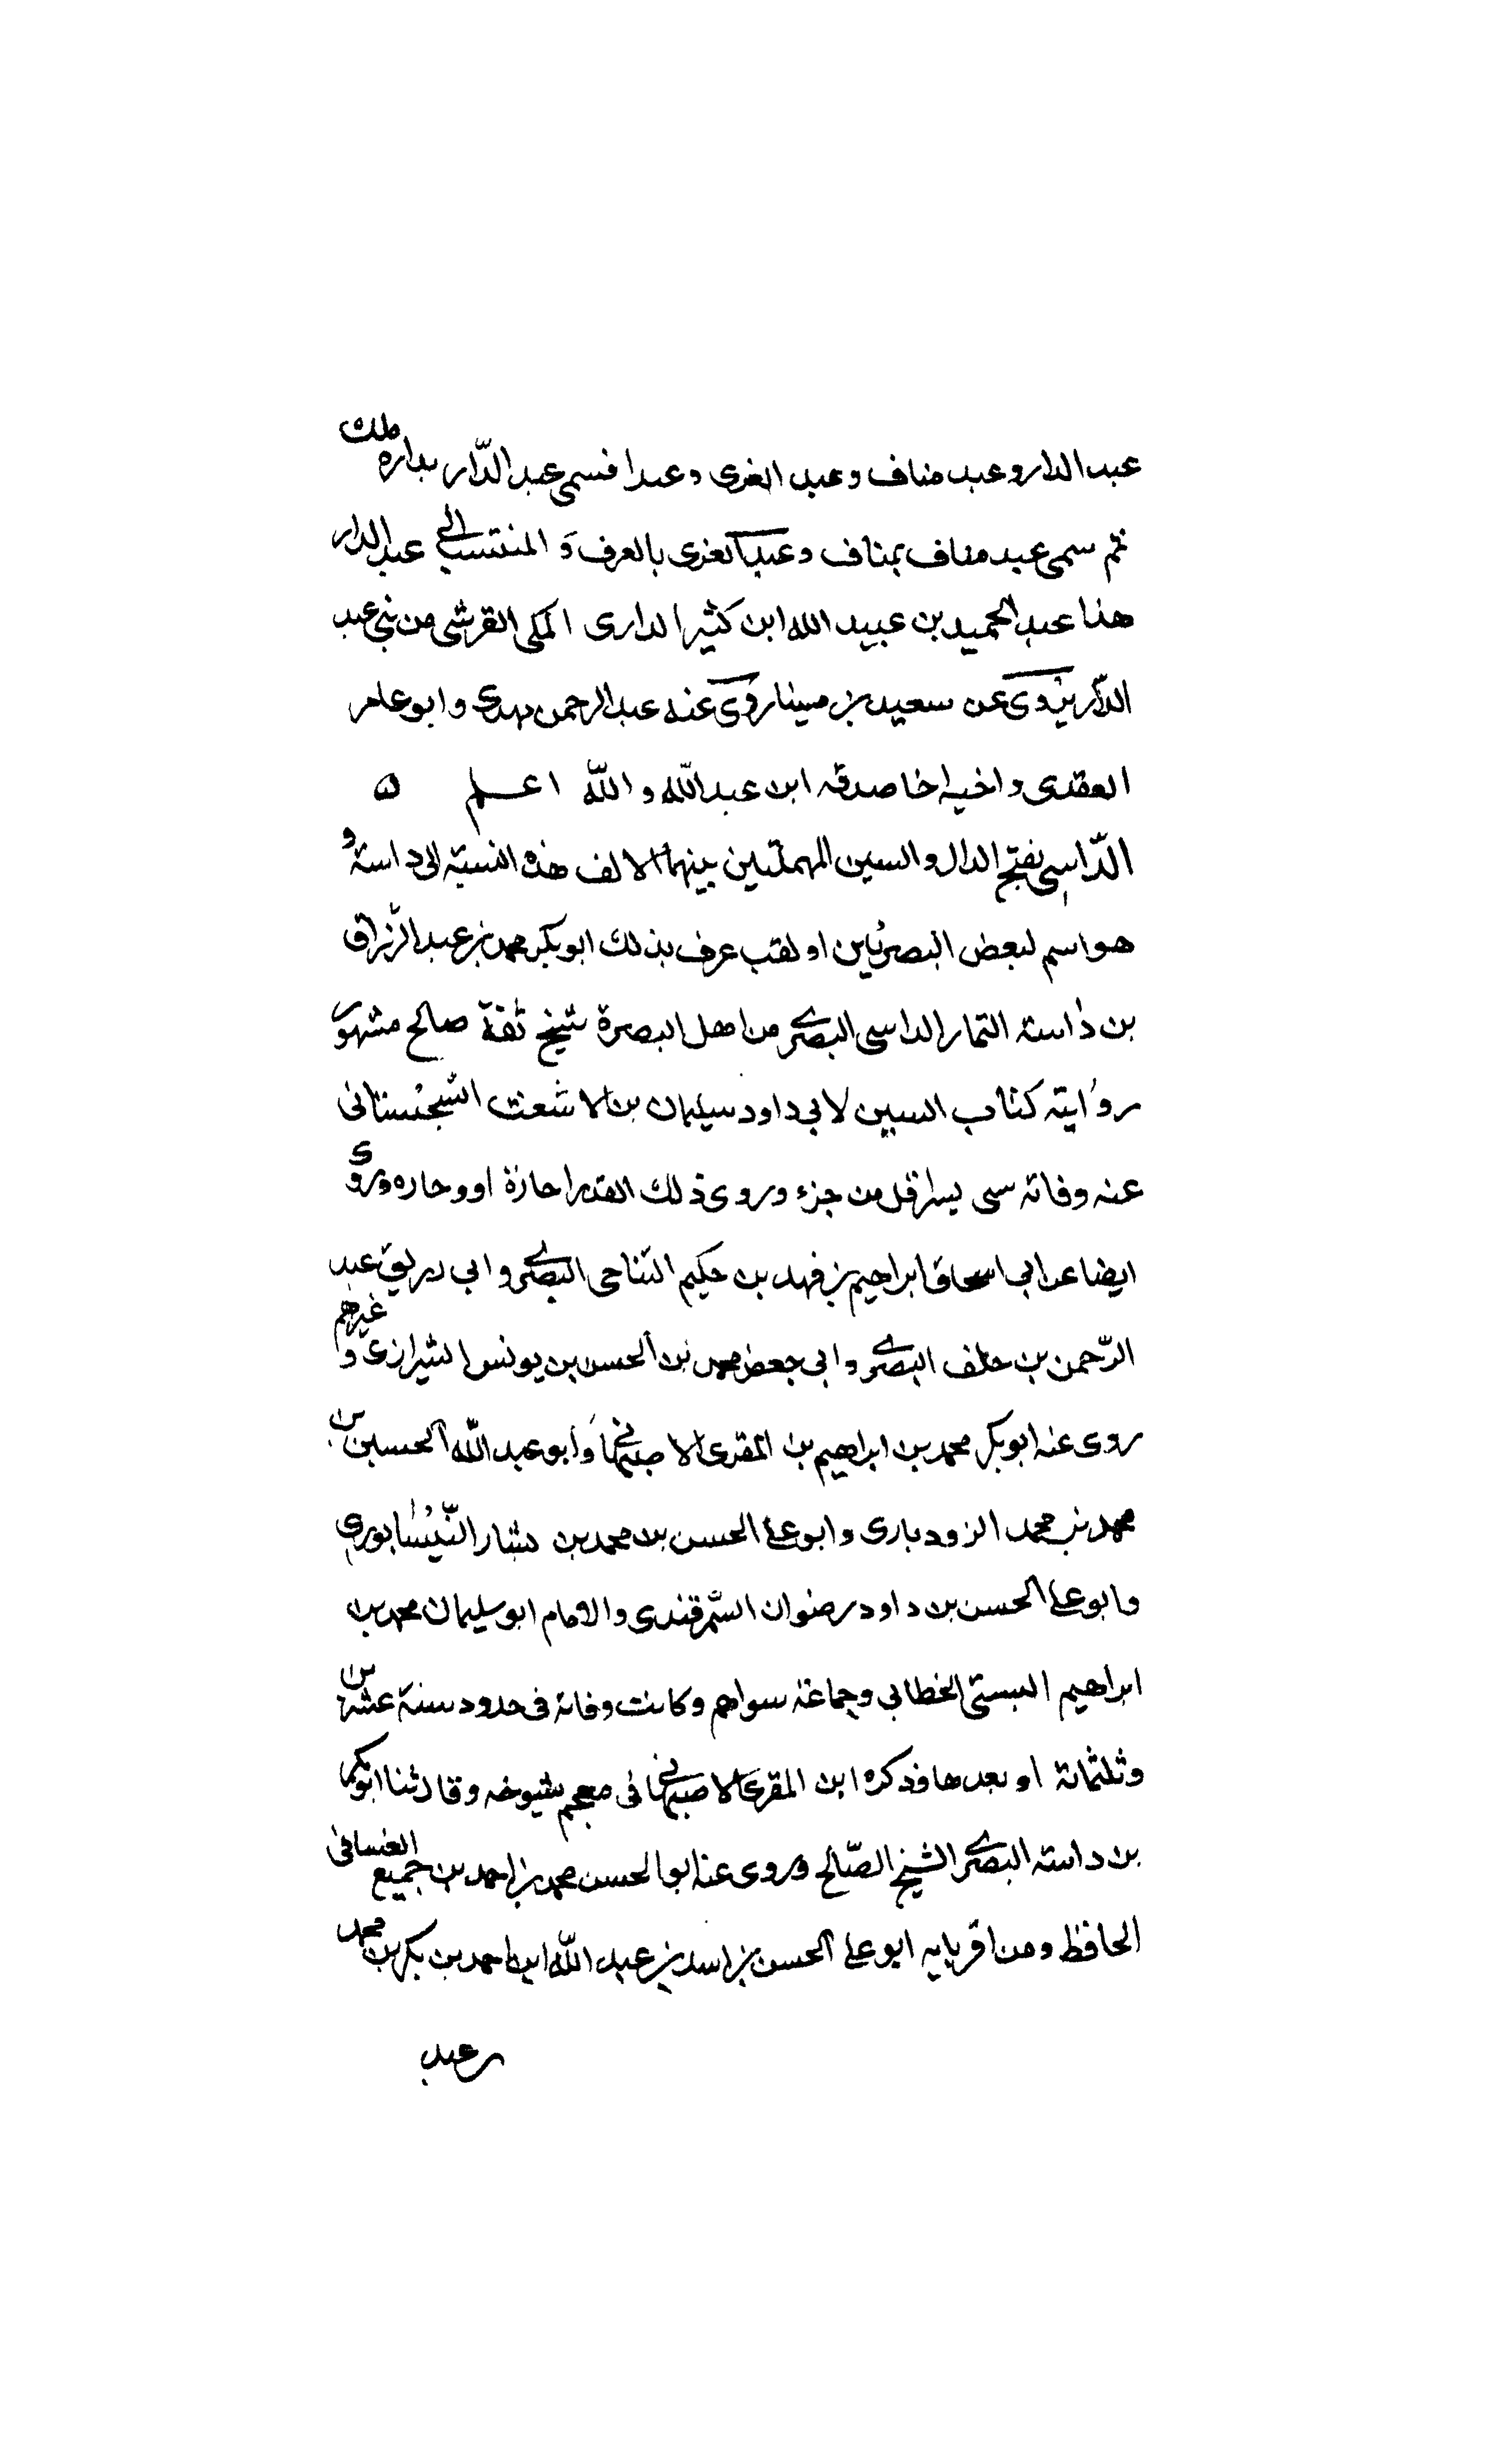 عبد الدار وعبد مناف وعبد العزى وعبدا فسمى عبد الدّار بداره ملك
ثم سمى عبد مناف بمناف وعبد العزى بالعرف وَ المنتسب الى عبد الدار
هذا عبد الحميد بن عبيد الله ابن كثير الدارى المكى القرشى من بنى عبد
الدّار يروى عن سعيد بن مينا روى عنه عبد الرحمن مهدى وابو عامر
العقدى واخيه اخا صدقه ابن عبد اللّه و اللّه اعلم ه
الدّاسى بفتح الدال والسين المهملتين بينهما الالف هذه النسبة الى داسة و
هو اسم لبعض البصريين او لقب عرف بذلك ابو بكر محمد بن عبد الرّزاق
بن داسته التمار الداسى البصرى من اهل البصرة شيخ ثقة صالح مشهور
روايته كتاب السنن لابى داود سليمان بن الاشعث السّجستانى
عنه وفاته سى يسراقل من جزء وروى ذلك القدر اجازة او وجاده وروى
ايضا عن ابى اسحاق ابراهيم بن فهد بن حكيم الناجى البصرى و ابى رريق عبد
الرّحمن بن خلف البصرى وابى جعفر محمد بن الحسن بن يونس الشيرازى وغيرهم
روى عنه ابو بكر محمد بن ابراهيم بن المقرى الاصبهانى وأبو عبد اللّه الحسين بن
محمد بن محمد الروذبارى وابو على الحسن بن محمد بن بشار النّيسابورى
وابو على الحسن بن داود رضوان السّمرقندى والامام ابو سليمان محمد بن
ابراهيم البستى الخطابى وجماعة سواهم وكانت وفاته فى حدود سنة عشرين
وثلثمائة او بعدها فذكره ابن المقرى الاصبهانى فى معجم شيوخه وقال ثنا ابو بكر
بن داسته البصرى الشيخ الصّالح وروى عنه ابو الحسن محمد بن احمد بن جميع الغسانى
الحافظ ومن اقربايه ابو على الحسن بن اسد بن عبد اللّه ابن احمد بن بكر بن محمد
بن عبد